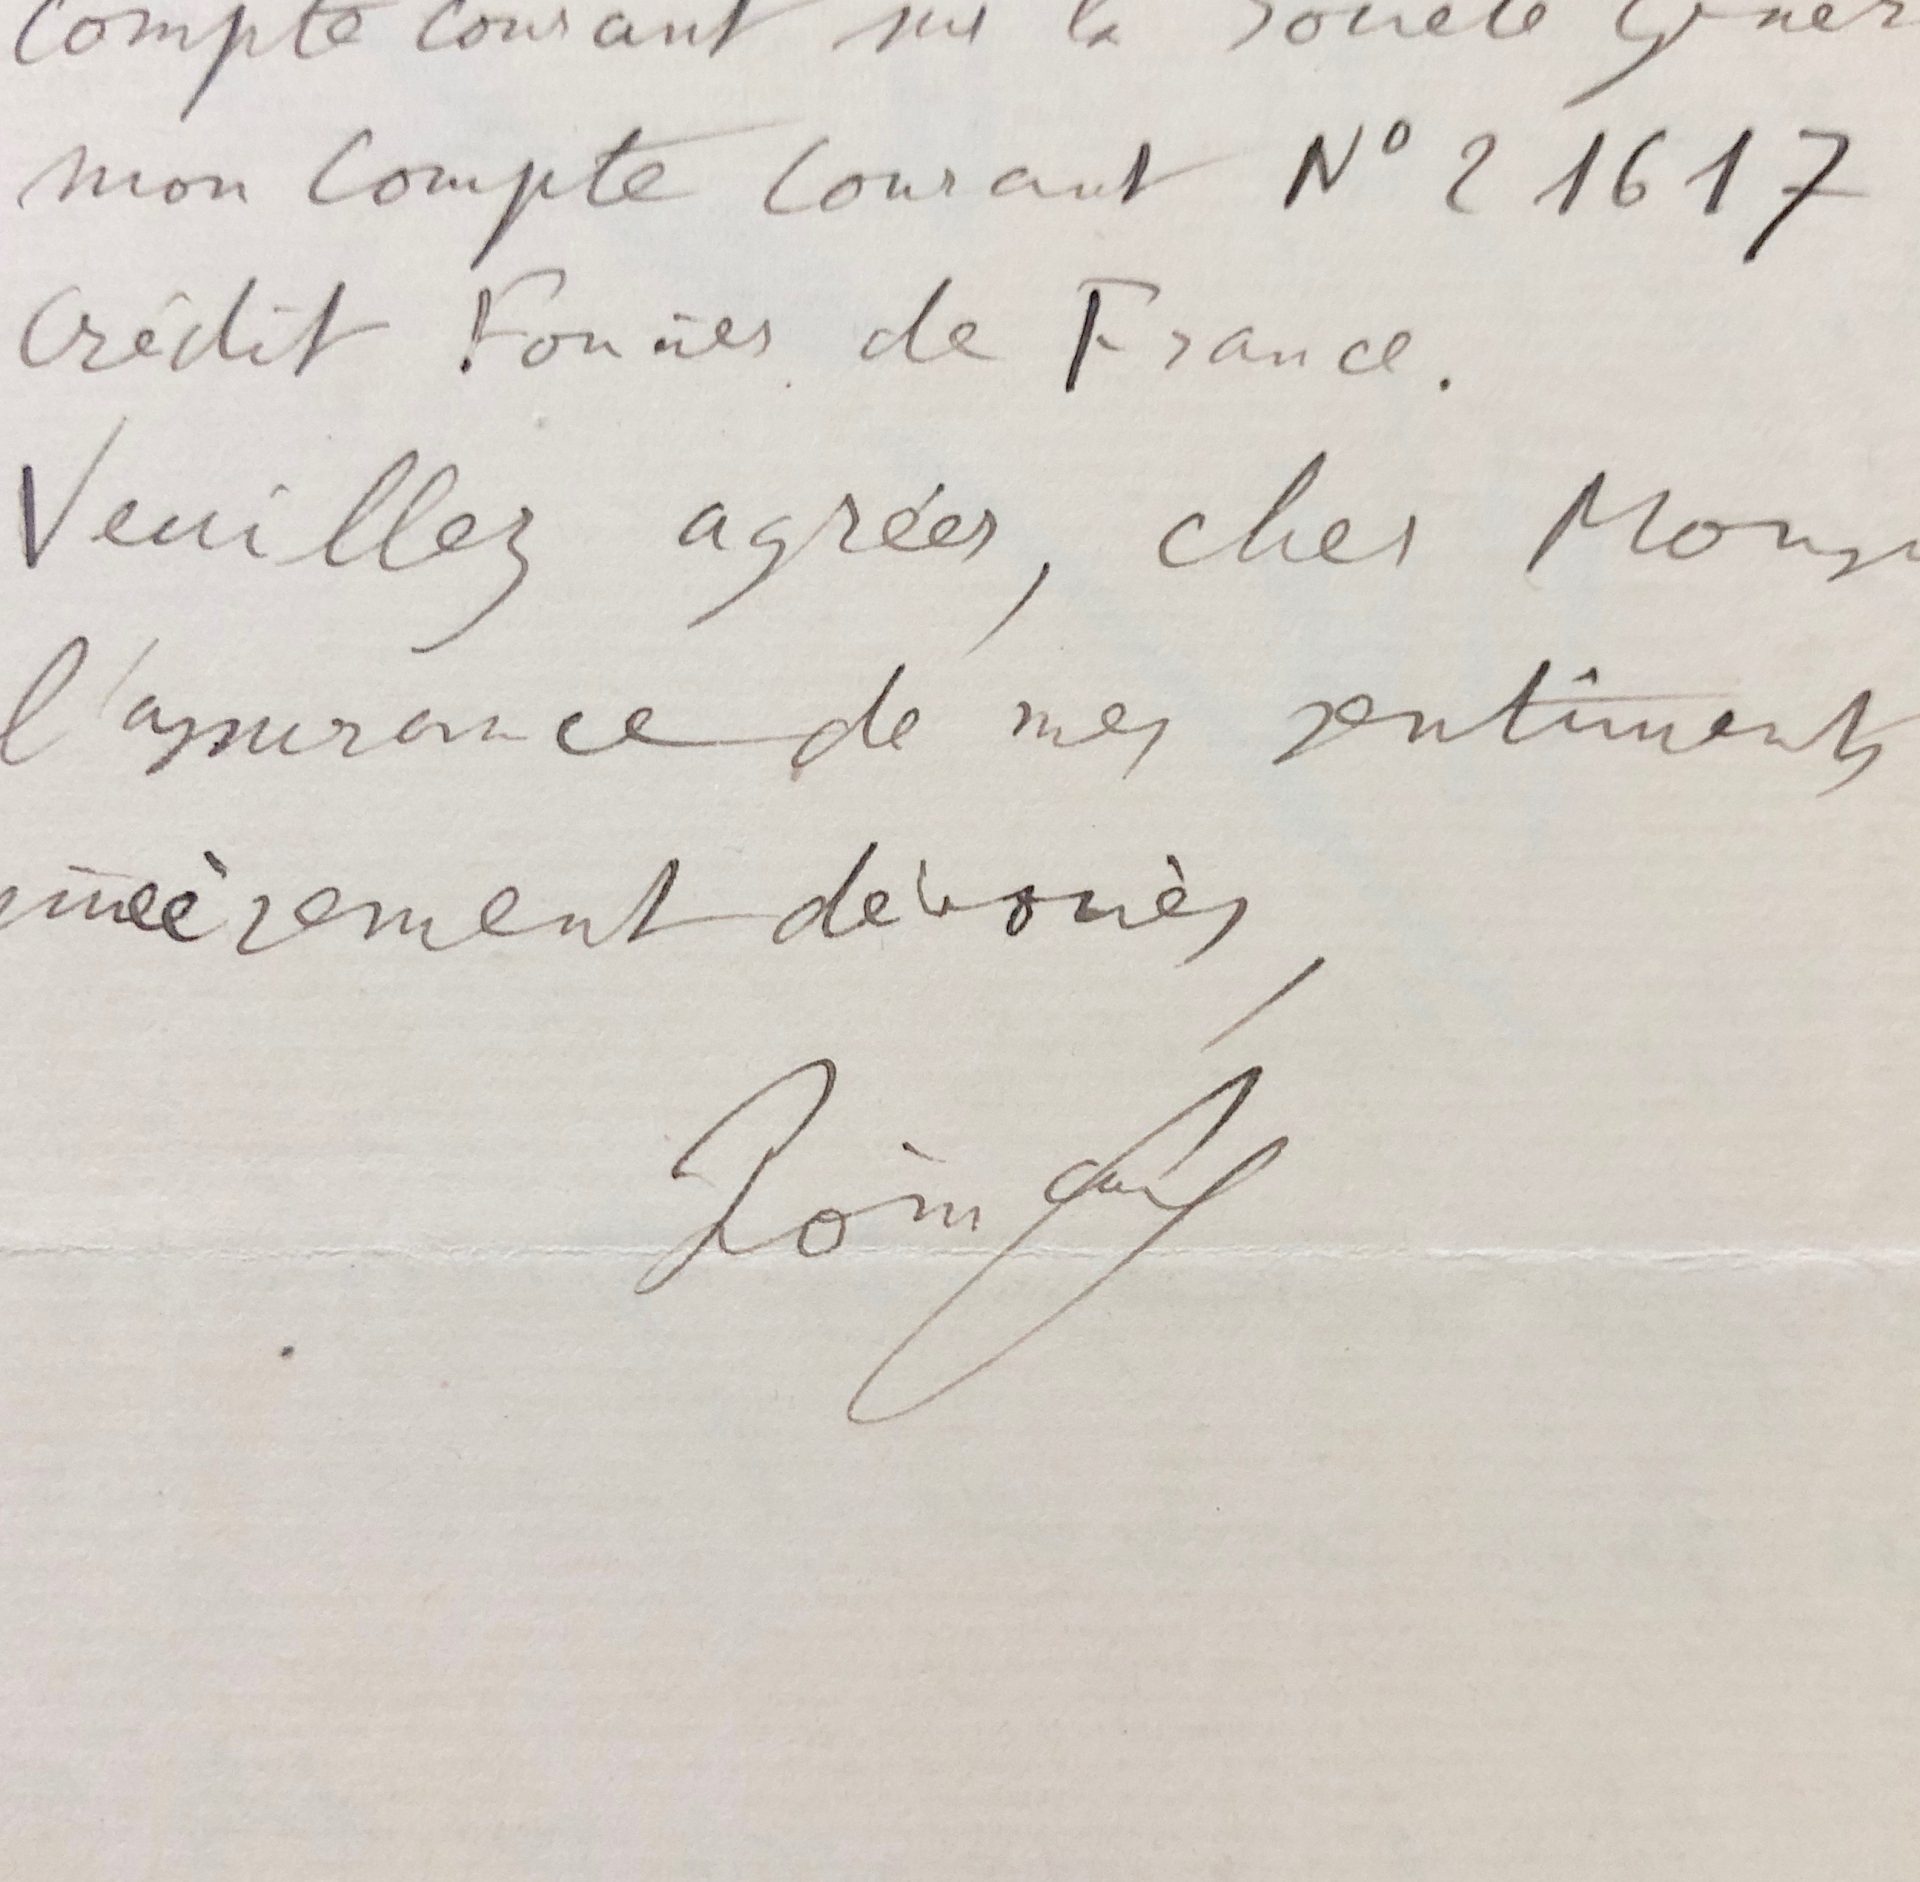 compte courant sur la Société Génér
mon compte courant N° 21617
Crédit Foncier de France.
Veuillez agréer, cher Mons
l'assurance de mes sentiments
sincèrement dévoués,